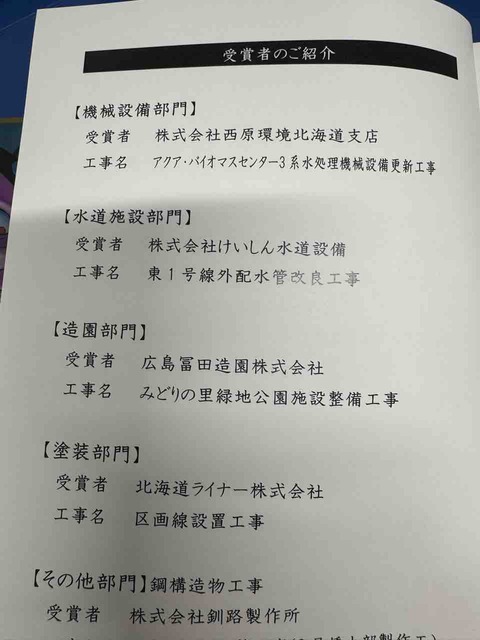 受賞者のご紹介
【機械設備部門】
受賞者 株式会社西原環境北海道支店
工事名 アクア・バイオマスセンター3系水処理機械設備更新工事
【水道施設部門】
受賞者 株式会社けいしん水道設備
工事名 東1号線外配水管改良工事
【造園部門】
受賞者 広島冨田造園株式会社
工事名 みどりの里緑地公園施設整備工事
【塗装部門】
受賞者 北海道ライナー株式会社
工事名 区画線設置工事
【その他部門】鋼構造物工事
受賞者 株式会社釧路製作所